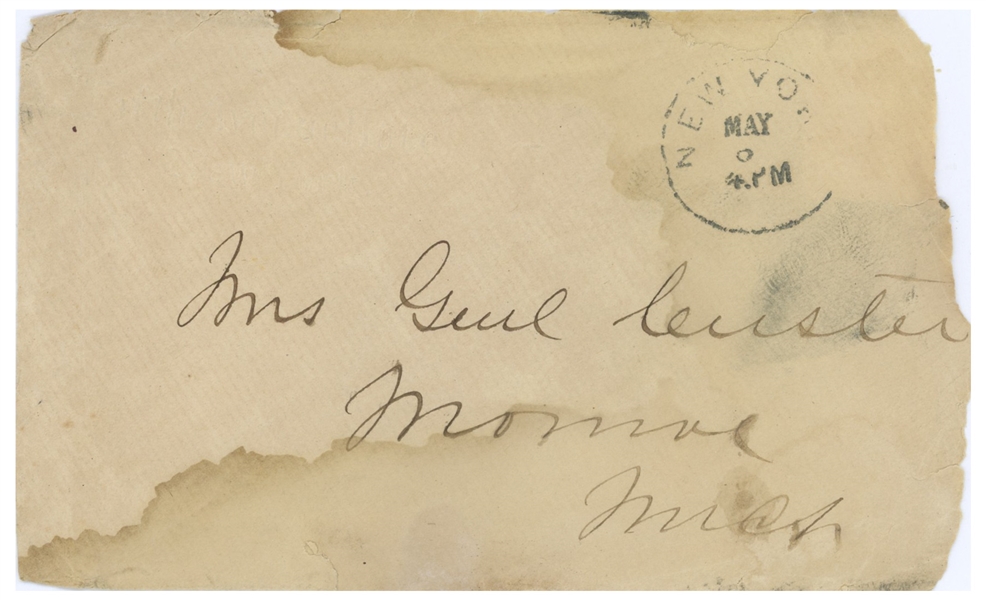 NEW YOR
MAY
4.PM
Mrs Genl Custer
Monroe
Mich